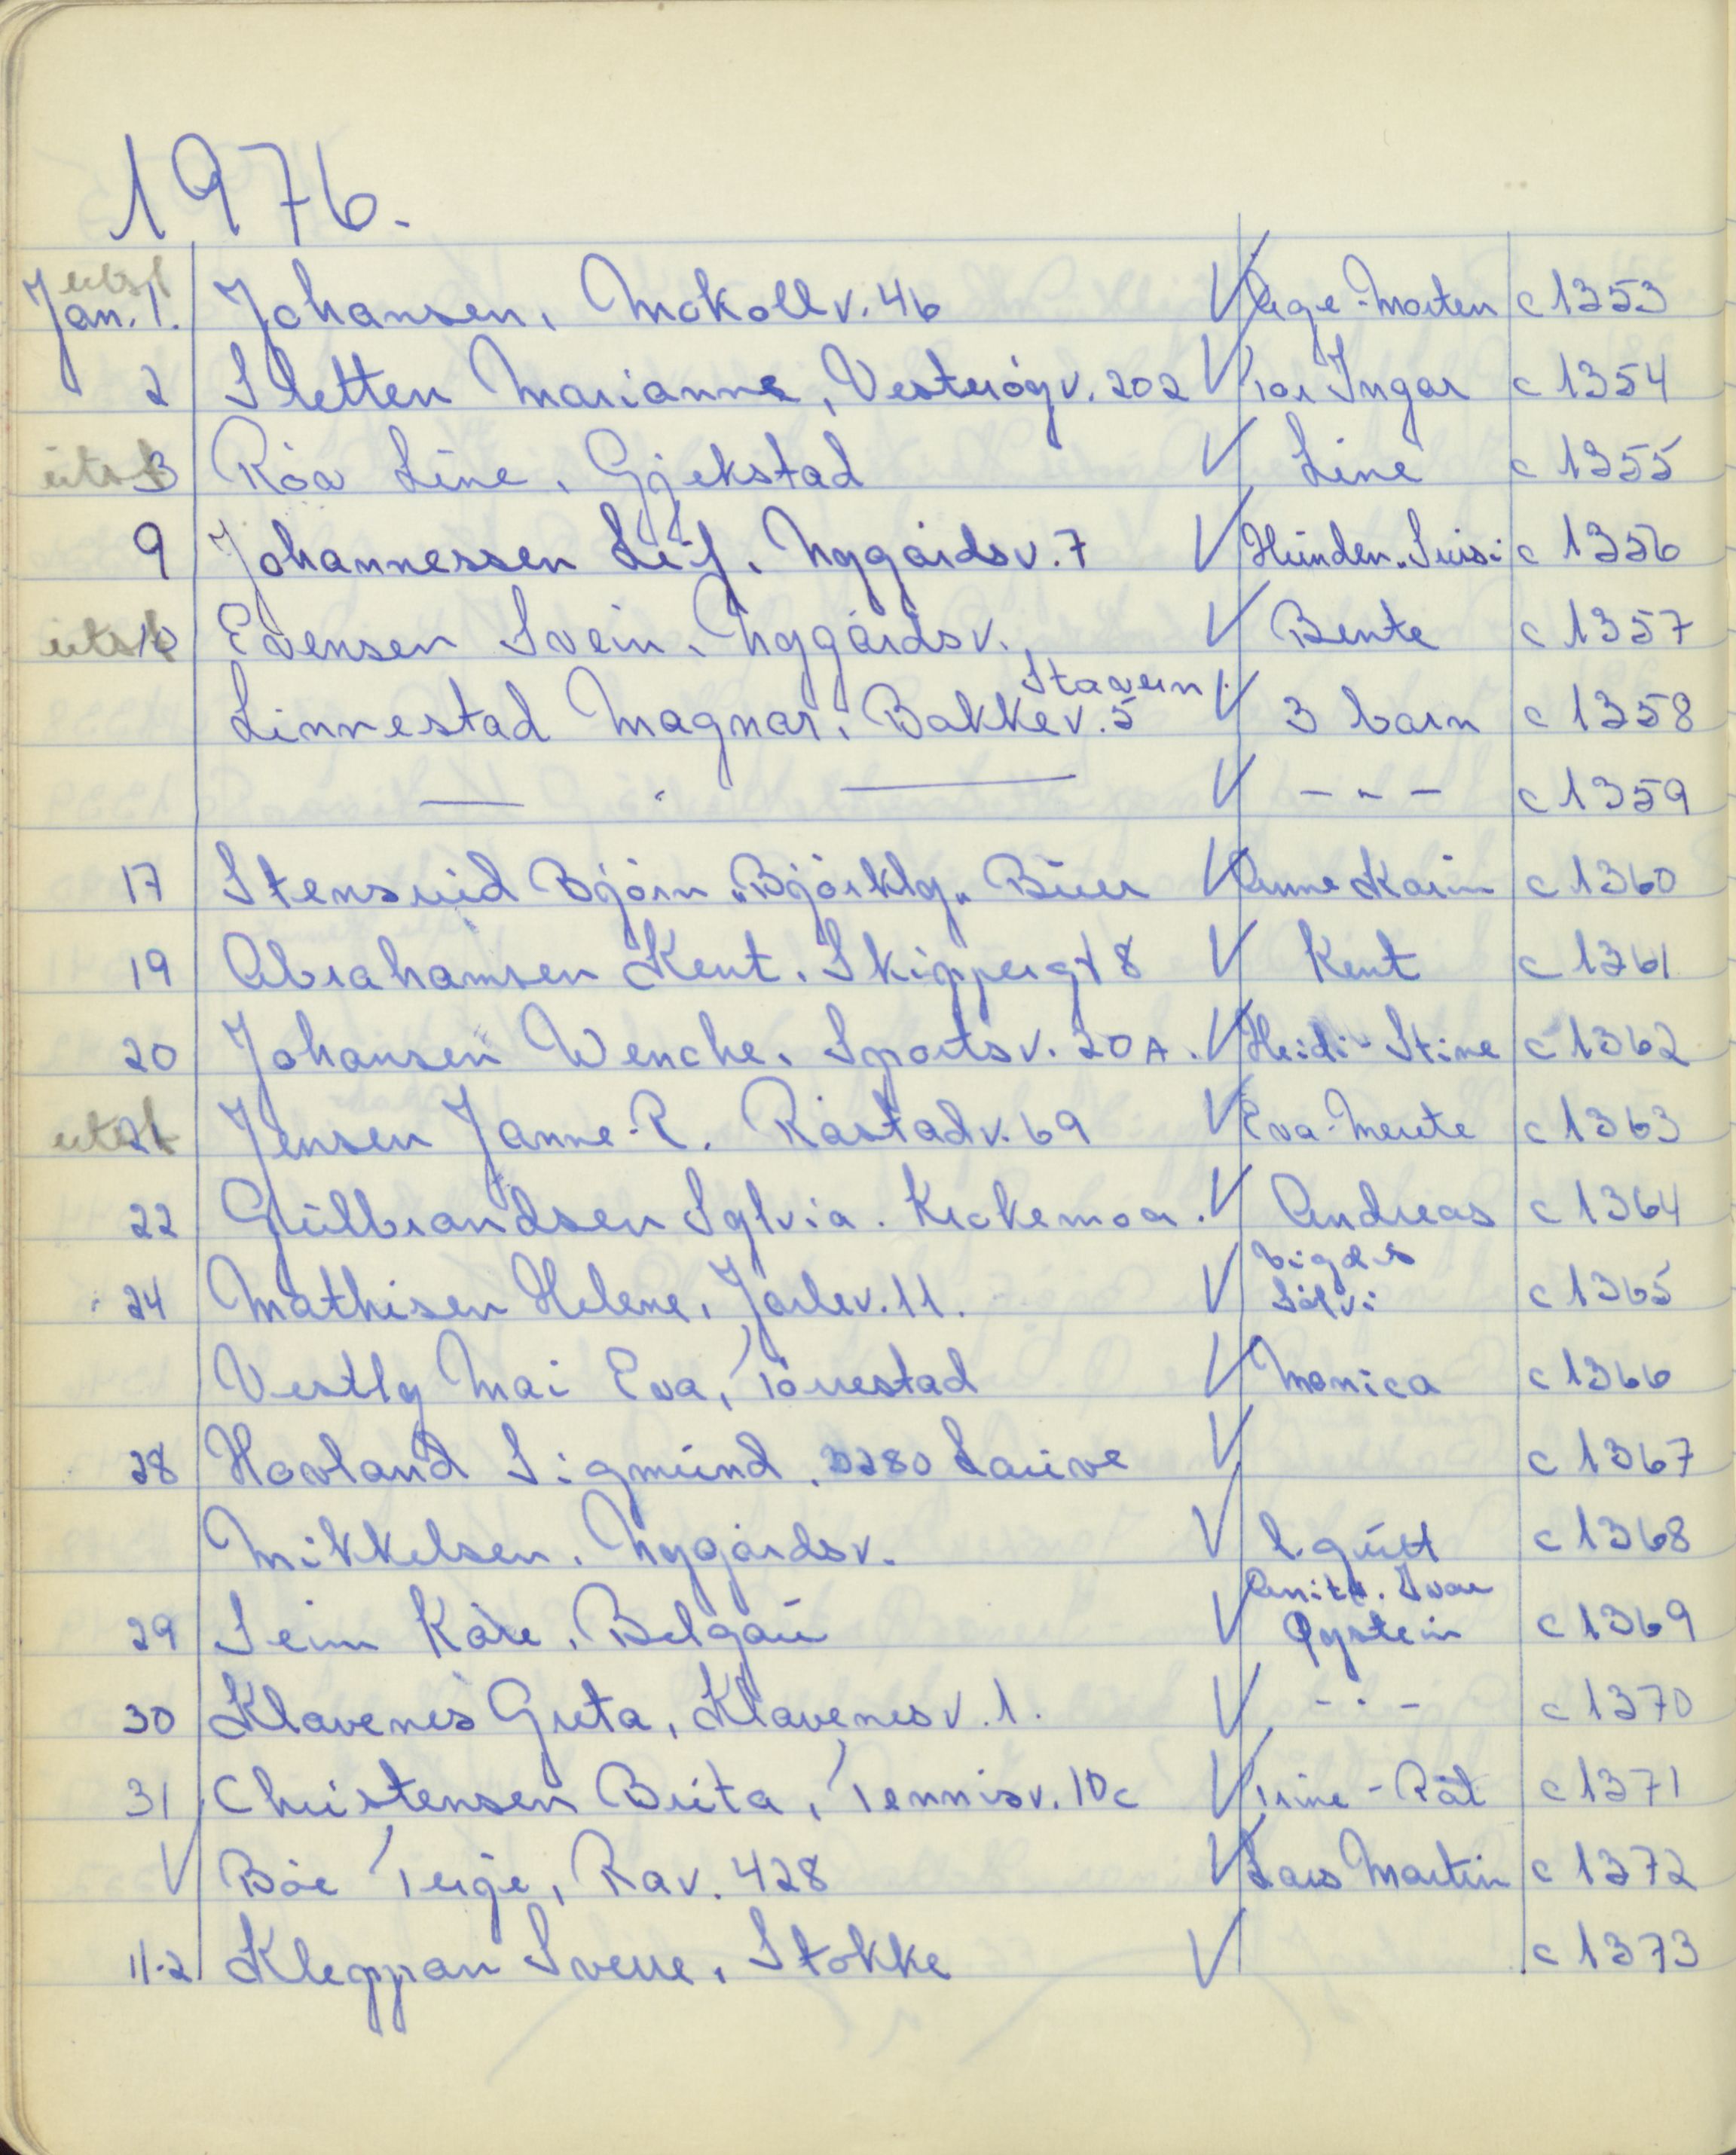 1976.
utst
Jan. 1. Johansen, Mokollv. 46 √ Åge-Morten c 1353
2 Sletten Marianne, Vesterøyv. 202 √ Tor Ingar c 1354
utst 3 Röa Line, Gjekstad √ Line c 1355
9 Johannessen Leif, Nygårdsv. 7 √ Hunden "Suisi c 1356
utst 10 Evensen Svein, Nygårdsv. √ Bente c 1357
Stavern
Linnestad Magnar, Bakkev. 5 √ 3 barn c 1358
— " — √ - " - c 1359
17 Stensrud Björn "Björkly" Buer √ Anne Karin c 1360
19 Abrahamsen Kent, Skippergt 8 √ Kent c 1361
20 Johansen Wenche, Sportsv. 20A. √ Heidi-Stine c 1362
utst 21 Jensen Janne-R. Råstadv. 69 √ Eva-Merete c 1363
22 Gulbrandsen Sylvia. Krokemoa. √ Andreas c 1364
Vigdis
24 Mathisen Helene, Jarlev. 11. √ Sölvi c 1365
Vestly Mai Eva, Torrestad √ Monica c 1366
28 Hovland Sigmund, 3280 Lauve √ c 1367
Mikkelsen, Nygårdsv. √ 1 gutt c 1368
Anita. Ivar
29 Seim Kåre, Belgau √ Øystein c 1369
30 Klavenes Greta, Klavenesv. 1. √ - " - c 1370
31 Christensen Brita, Tennisv. 10c √ Trine-Pål c 1371
√ Böe Terje, Rav. 428 √ Lars Martin c 1372
11-2 Kleppan Sverre, Stokke √ c 1373